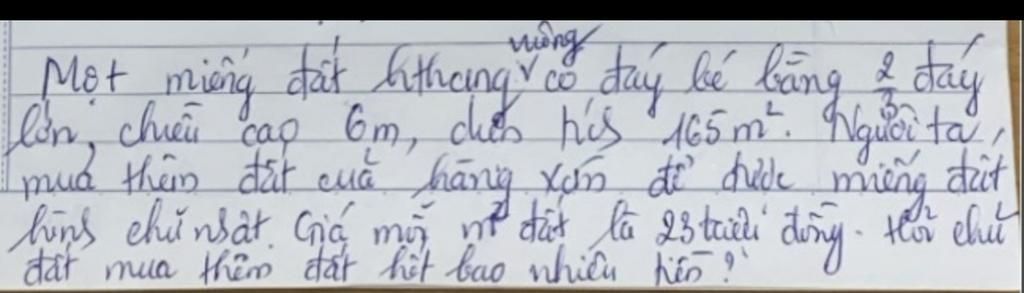 Một miếng đất hthang vuông có đáy bé bằng 2/3 đáy
lớn, chiều cao 6m, diện tích 165m². Người ta,
mua thêm đất của hàng xóm để được miếng đất
hình chữ nhật. Giá mỗi m² đất là 23 triệu đồng. Hỏi chủ
đất mua thêm đất hết bao nhiêu tiền?